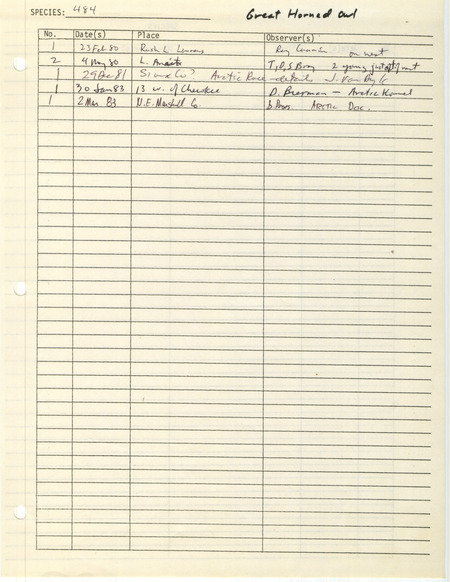 SPECIES: 484 Great Horned Owl
No. Date(s) Place Observer(s)
1 23 Feb 80 Rush L. Ray on nest
2 4 May 80 L. T, D, S 2 young just off nest
1 29 Dec 81 Sioux Co? Arctic Race - details J. Van Dyk
1 30 Jan 83 13 w. of Cherokee D. Bierman - Arctic Horned
1 2 Mar 83 N.E. Marshall Co. B. Arctic Doc.